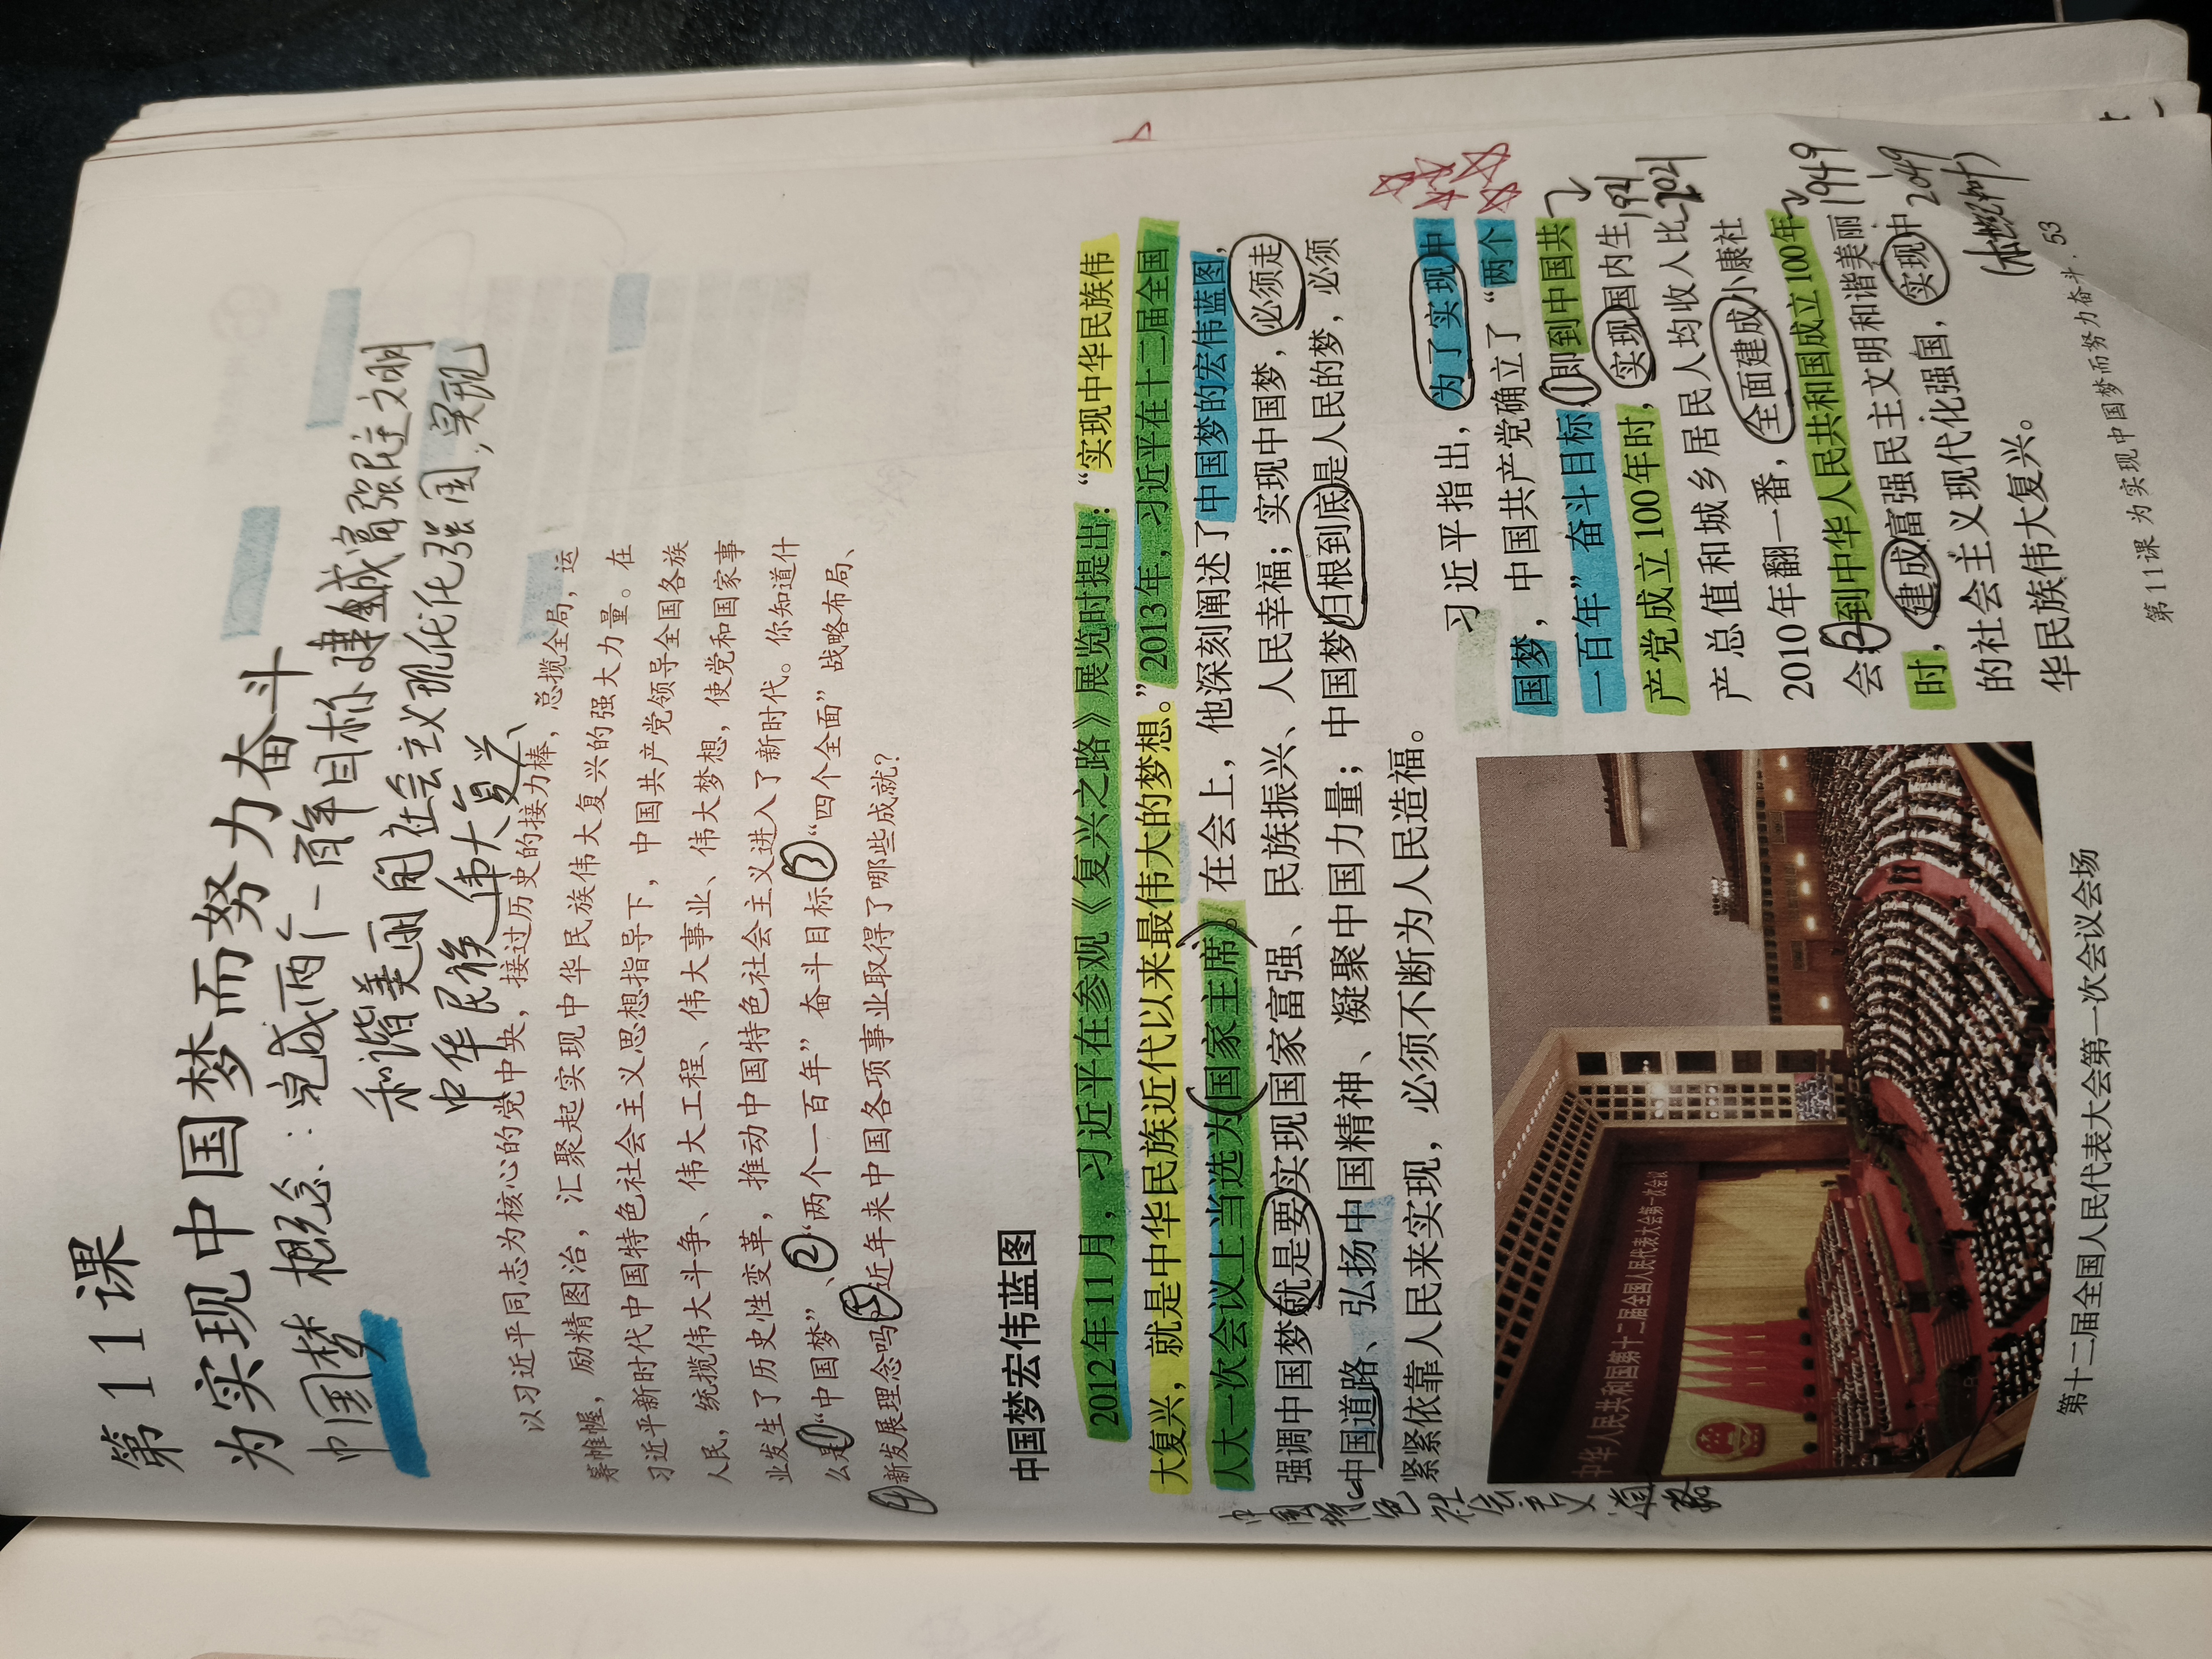 第11课
为实现中国梦而努力奋斗
中国梦 概念：完成两个一百年目标建成富强民主文明
和谐美丽的社会主义现代化强国，实现
中华民族伟大复兴、
以习近平同志为核心的党中央，接过历史的接力棒，总揽全局，运
筹帷幄，励精图治，汇聚起实现中华民族伟大复兴的强大力量。在
习近平新时代中国特色社会主义思想指导下，中国共产党领导全国各族
人民，统揽伟大斗争、伟大工程、伟大事业、伟大梦想，使党和国家事
业发生了历史性变革，推动中国特色社会主义进入了新时代。你知道什
么是①“中国梦”、②“两个一百年”奋斗目标③“四个全面”战略布局、
④新发展理念吗⑤近年来中国各项事业取得了哪些成就？
中国梦宏伟蓝图
2012年11月，习近平在参观《复兴之路》展览时提出：“实现中华民族伟
大复兴，就是中华民族近代以来最伟大的梦想。”2013年，习近平在十二届全国
人大一次会议上当选为（国家主席）。在会上，他深刻阐述了中国梦的宏伟蓝图，
强调中国梦就是要实现国家富强、民族振兴、人民幸福；实现中国梦，必须走
中国道路、弘扬中国精神、凝聚中国力量；中国梦归根到底是人民的梦，必须
紧紧依靠人民来实现，必须不断为人民造福。
中国特色社会主义道路
习近平指出，为了实现中
国梦，中国共产党确立了“两个
一百年”奋斗目标，①即到中国共
产党成立100年时，实现国内生
产总值和城乡居民人均收入比
2010年翻一番，全面建成小康社
会②到中华人民共和国成立100年
时，建成富强民主文明和谐美丽
的社会主义现代化强国，实现中
华民族伟大复兴。
1921
2021
1949
2049
（本世纪中叶）
中华人民共和国第十二届全国人民代表大会第一次会议
第十二届全国人民代表大会第一次会议会场
第11课 为实现中国梦而努力奋斗·53